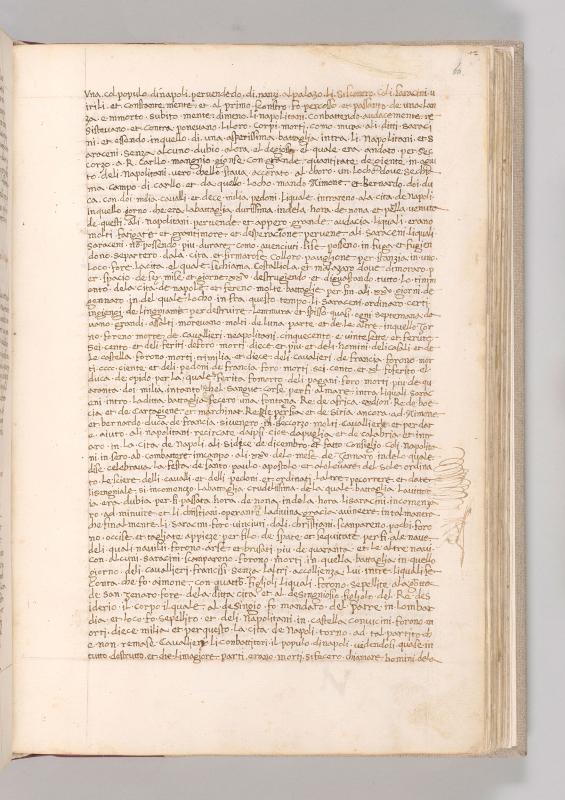 Vna. col populo. dinapoli. pervenedo. di. nanzi. alpalazo. li. Sisonero. coli. Saracini. v
irili. et. constante. mente. et al primo. scontro. fo percosso. et passato. de una lan
za. e nmorto. subito. mente. dimeno. li. napolitani. Conbattendo. audacemente. re
sistevano. et contra. ponevano. Liloro. Corpi. morti. como. mura. ali. ditti. Saraci
ni. et essendo. inquello. di. una. asperissima. battaglia. intra. li. Napolitani. et s
araceni. senza. alcuno. dubio. alora. el. desiosa. el quale. era. andato. per. soc
corzo. a. R. Carllo. mangnio. gionse. con grande. quantitate. de gente. in agiu
to. deli. Napolitani. vero. che lo. stava. accorato. al. choro. un. Locho. dove. se chia
ma. campo. di. carllo. et. da. quello. Locho. mando. Aimone. et. bernardo. doi. du
ca. con. doi. milia. cavalli. et. dece. milia. pedoni. Liquale. intrareno. ala cita. de. napoli
inquello. iorno. che. era. labattaglia. durissima. indela. hora. de. nona. et. per la. venuta
de. questi. ali. napolitani. pervende. et appero. grande. audacia. liquali. erano
molti. fatigate. et. granti more. et desperacione. pervene. ali. Saraceni. liquali.
Saraceni. no. possendo. piu. durare. como. avenciuti. lise. posseno. in fuga. et fugien
do no. separtero. dala. cita. et firmarose. colloro. pavaglione. per. stanzia. in uno.
Loco. fore. la cita. el quale. se chiama. Costalliola. et malazare. dove. dimoraro. p
er. spacio. de. sey. mise. et giorne. xxv. destrugiendo. et diguastando. tutto. lo. timim
onto. dela. cita. de napole. et fereno. molte. battaglie. per fin. ali. xxv. giorni. de
gennaro. in del. quale. locho. in fra. questo. tempo. li. Saraceni. ordinaro. certi
ingiengi. de lingniame. per destruire. Le mmura. et spisso. quasi. ogni. septemana. da
vano. grandi. assolti. morevano. molti. de luna. parte. et de. le altre. inquello. Jor
no. foreno. morte. de. cavallieri. neapolitani. cinquecento. e. vinte sette. et feriute
sei. cento. et deli. feriti. de foro. morti. diece. et piu. et deli. homini. deli casali. et de
le castella. foreno. morti. trimilia. et diece. deli. cavalieri. de francia. foreno. mor
ti. ccc. ciente. et deli. pedoni. de francia. foro. morti. sei. cento. et si. fo ferito. el
duca. de. opido. per la. quale. ferita. fo morto. deli. pagani. foro. morti. piu. de qu
aronta. doi. milia. intanto. chel. sangue. corse. perfi. al mare. intra. liquali. sarac
eni. intro. Laditta. battaglia. fecero. una. fontana. Re. de africa. exdion. Re. de boe
cia. et de. Cartagiene. et marchinat. Re. de persia. et de. Siria. ancora. ad. Aimone
et. bernardo. duca. de. francia. si venero. in soccorzo. molti. Cavallieri. et per dar
e. aiuto. ali. napolitani. recircate. da pisi. cioe. dapuglia. et de calabria. et intr
aro. in. la cita. de Napoli. ali. Sidece. de dicembro. et facto. Consiglio. coli. Napolita
ni. in sero. ab. combattere. in campo. ali. xxv. delo. mese. de. Jennaro. in delo. quale
dise. celebrava. la. festa. de santo. paulo. apostolo. et. alolevare. del. sole. ordina
to. Le. sciere. delli. cavalli. et. delli. pedoni. et ordinati. Laltre. pecorrere. et date.
lisengniale. si. incomenzo. Labattaglia. crudelissima. dela. quale. battaglia. La vitor
ia. era. dubia. perfi. passata. hora. de nona. indela. hora. li saracini. incomenza
ro. ad. minuire. et Li. christiani. operante. Ladivina. gracia. avincere. in tal manera
che finalmente. li. Saracini. foro. vinciuti. dali. christiani. scampareno. pochi. foro
no. occise. et tagliate. appieze. per filo. de. spate. et sequitate. perfi. ale. nave.
deli. quali. navili. foreno. arse. et brusati. piu. de quaranta. et Le altre. navi.
Con. alcuni. saracini. scampareno. foreno. morti. in quella. battaglia. in quello
giorno. deli. cavalieri. francissi. senza. laltri. accollienza. Lui. intre. liquali. se
conta. che fo. aimone. con quatto. figlioli. liquali. foreno. sepellite. ala gorta
de. san. Jenaro. fore. dela. ditta. cita. et al. desingniosio. figliolo. del. Re. des
iderio. il corpo. il quale. al. desingio. fo. mandato. del. patre. in. Lombar
dia. et loco. fo. sepellito. et. deli. Napolitani. in castella. convicini. foreno. m
orti. diece. milia. et per questo. La cita. de Napoli. torno. ad. tal partito. ch
e. non. remase. Cavallieri. li. combattitori. il populo. di napoli. vedendosi. quale. in
tutto. destrutto. et che limagiore. parti. erano. morti. si fecero. chiamare. homini. dela